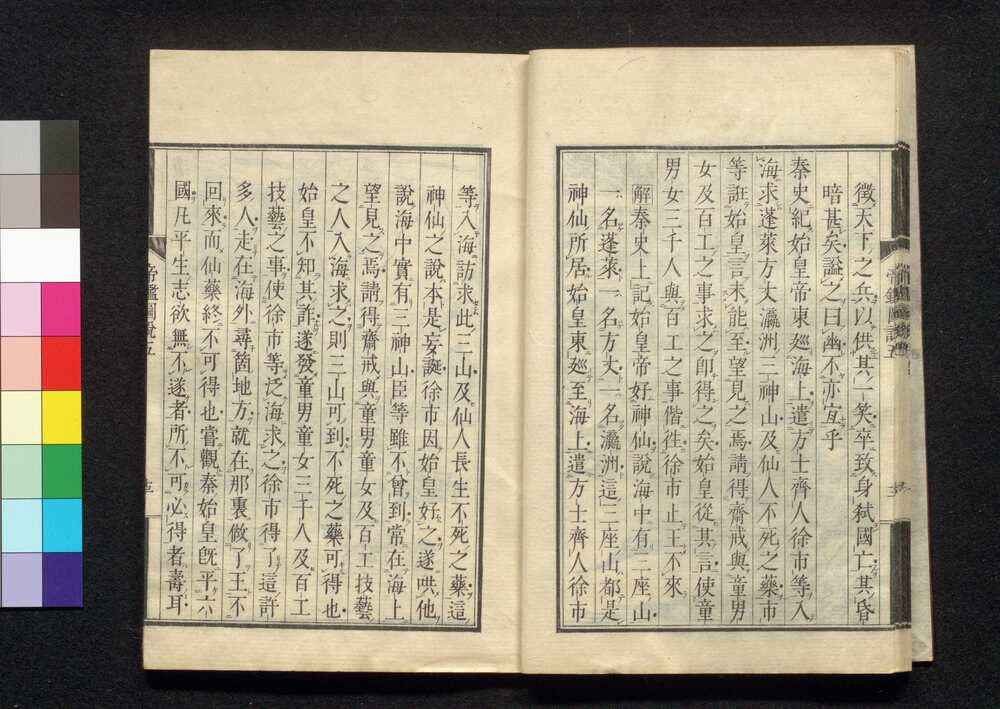 徴天下之兵以供其一笑卒致身弑國亡其昏
暗甚矣謚之曰幽不亦宜乎
秦史紀始皇帝東廵海上遣方士齊人徐市等入
海求蓬萊方丈瀛洲三神山及仙人不死之藥市
等誑始皇言未能至望見之焉請得齋戒與童男
女及百工之事求之即得之矣始皇從其言使童
男女三千人與百工之事偕徃徐市止王不來
解秦史上記始皇帝好神仙說海中有三座山
一名蓬萊一名方丈一名瀛洲這三座山都是
神仙所居始皇東廵至海上遣方士齊人徐市
等入海訪求此三山及仙人長生不死之藥這
神仙之說本是妄誕徐市因始皇好之遂哄他
說海中實有三神山臣等雖不曾到常在海上
望見之焉請得齋戒與童男童女及百工技藝
之人入海求之則三山可到不死之藥可得也
始皇不知其詐遂發童男童女三千人及百工
技藝之事使徐市等泛海求之徐市得了這許
多人走在海外尋箇地方就在那裏做了王不
回來而仙藥終不可得也嘗觀秦始皇既平六
國凡平生志欲無不遂者所不可必得者壽耳
帝鑑圖說五